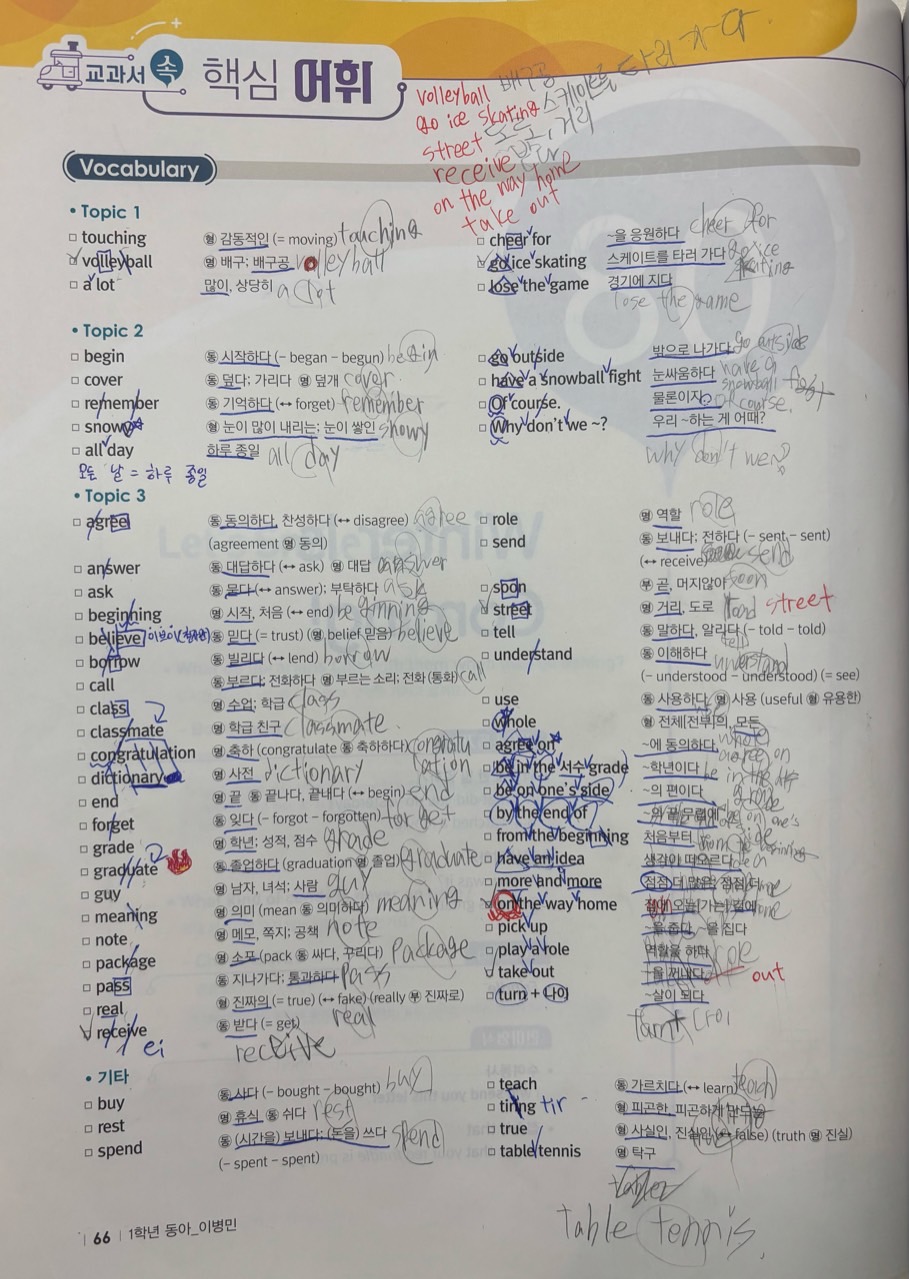 교과서 속 핵심 어휘
volleyball 배구공
go ice skating 스케이트를 타러 가다.
street 도로, 거리
receive 받다
on the way home
take out
Vocabulary
• Topic 1
touching 형 감동적인 (= moving) touching
volleyball 명 배구; 배구공 volleyball
a lot 많이, 상당히 a lot
cheer for ~을 응원하다 cheer for
go ice skating 스케이트를 타러 가다 go ice skating
lose the game 경기에 지다
lose the game
• Topic 2
begin 동 시작하다 (– began – begun) begin
cover 동 덮다; 가리다 명 덮개 cover.
remember 동 기억하다 (↔ forget) remember
snowy 형 눈이 많이 내리는; 눈이 쌓인 snowy
all day 하루 종일 all day
모든 날 = 하루 종일
go outside 밖으로 나가다 go outside
have a snowball fight 눈싸움하다 have a snowball fight
Of course. 물론이지. Of course.
Why don't we ~? 우리 ~하는 게 어때?
why don't we ~?
• Topic 3
agree 동 동의하다, 찬성하다 (↔ disagree) agree
(agreement 명 동의)
answer 동 대답하다 (↔ ask) 명 대답 answer
ask 동 묻다 (↔ answer); 부탁하다 ask
beginning 명 시작, 처음 (↔ end) beginning
believe 동 믿다 (= trust) (명 belief 믿음) believe
borrow 동 빌리다 (↔ lend) borrow
call 동 부르다; 전화하다 명 부르는 소리; 전화 (통화) call
class 명 수업; 학급 class
classmate 명 학급 친구 classmate.
congratulation 명 축하 (congratulate 동 축하하다) congratulation
dictionary 명 사전 dictionary
end 명 끝 동 끝나다, 끝내다 (↔ begin) end
forget 동 잊다 (– forgot – forgotten) forget
grade 명 학년; 성적, 점수 grade
graduate 동 졸업하다 (graduation 명 졸업) graduate
guy 명 남자, 녀석; 사람 guy
meaning 명 의미 (mean 동 의미하다) meaning
note 명 메모, 쪽지; 공책 note
package 명 소포 (pack 동 싸다, 꾸리다) package
pass 동 지나가다; 통과하다 pass
real 형 진짜의 (= true) (↔ fake) (really 부 진짜로) real
receive 동 받다 (= get)
ei receive
role 명 역할 role
send 동 보내다; 전하다 (– sent – sent)
(↔ receive) send
soon 부 곧, 머지않아 soon
street 명 거리, 도로 road street
tell 동 말하다, 알리다 (– told – told)
tell
understand 동 이해하다 understand
(– understood – understood) (= see)
use 동 사용하다 명 사용 (useful 형 유용한)
whole 형 전체[전부]의, 모든 whole
agree on ~에 동의하다 agree on
be in the 서수 grade ~학년이다 be in the 서수 grade
be on one's side ~의 편이다 be on one's side
by the end of ~의 끝 무렵에
from the beginning 처음부터 from the beginning
have an idea 생각이 떠오르다
more and more 점점 더 많은, 점점 더
on the way home 집에 오는[가는] 길에
pick up ~을 줍다, ~을 집다
play a role 역할을 하다 role
take out ~을 꺼내다 out
turn + 나이 ~살이 되다
turn + 나이
• 기타
buy 동 사다 (– bought – bought) buy
rest 명 휴식 동 쉬다 rest
spend 동 (시간을) 보내다; (돈을) 쓰다 spend
(– spent – spent)
teach 동 가르치다 (↔ learn) teach
tiring tir 형 피곤한, 피곤하게 만드는
true 형 사실인, 진실인 (↔ false) (truth 명 진실)
table tennis 명 탁구
table tennis.
66 1학년 동아_이병민